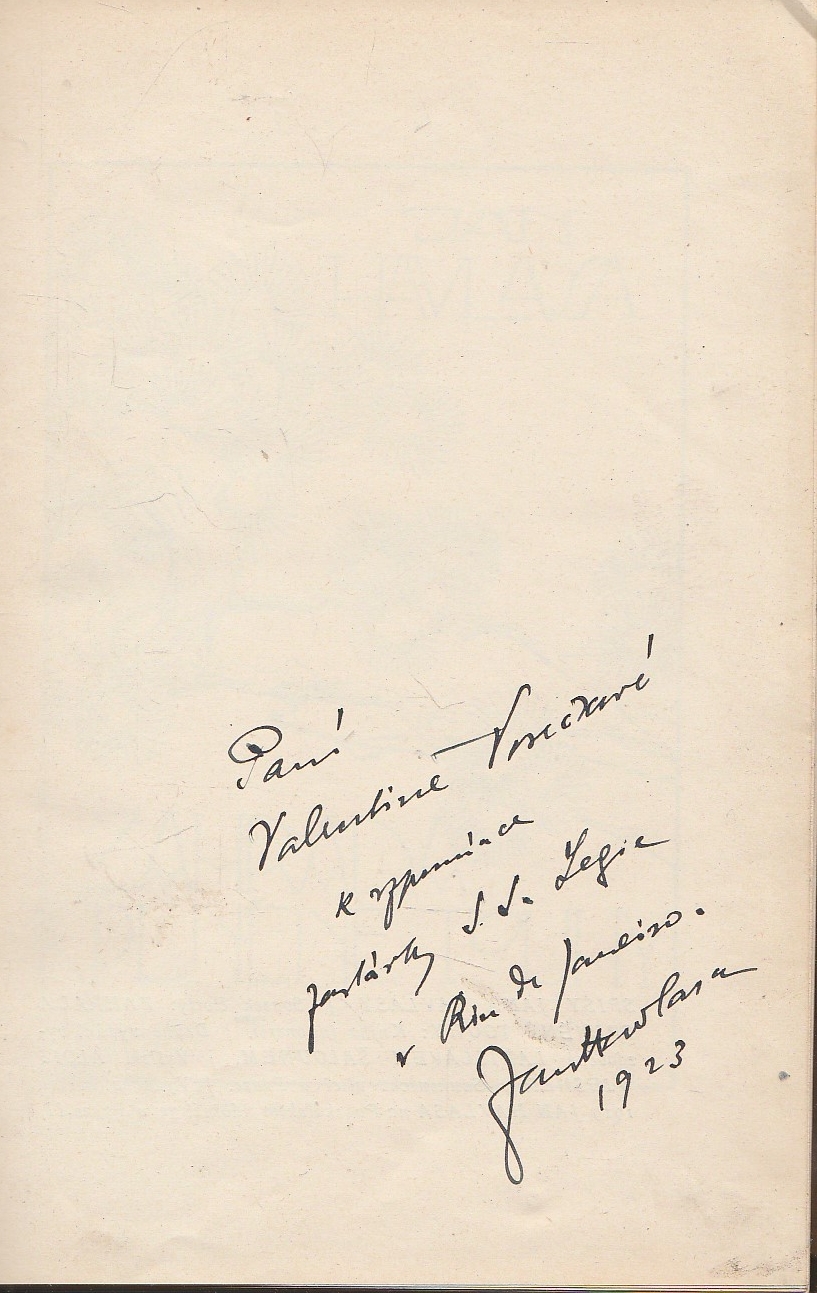 Paní
Valentine Voseckové
k vzpomínce
zastávky S. S. Legie
v Rio de Janeiro.
Jan Havlasa
1923